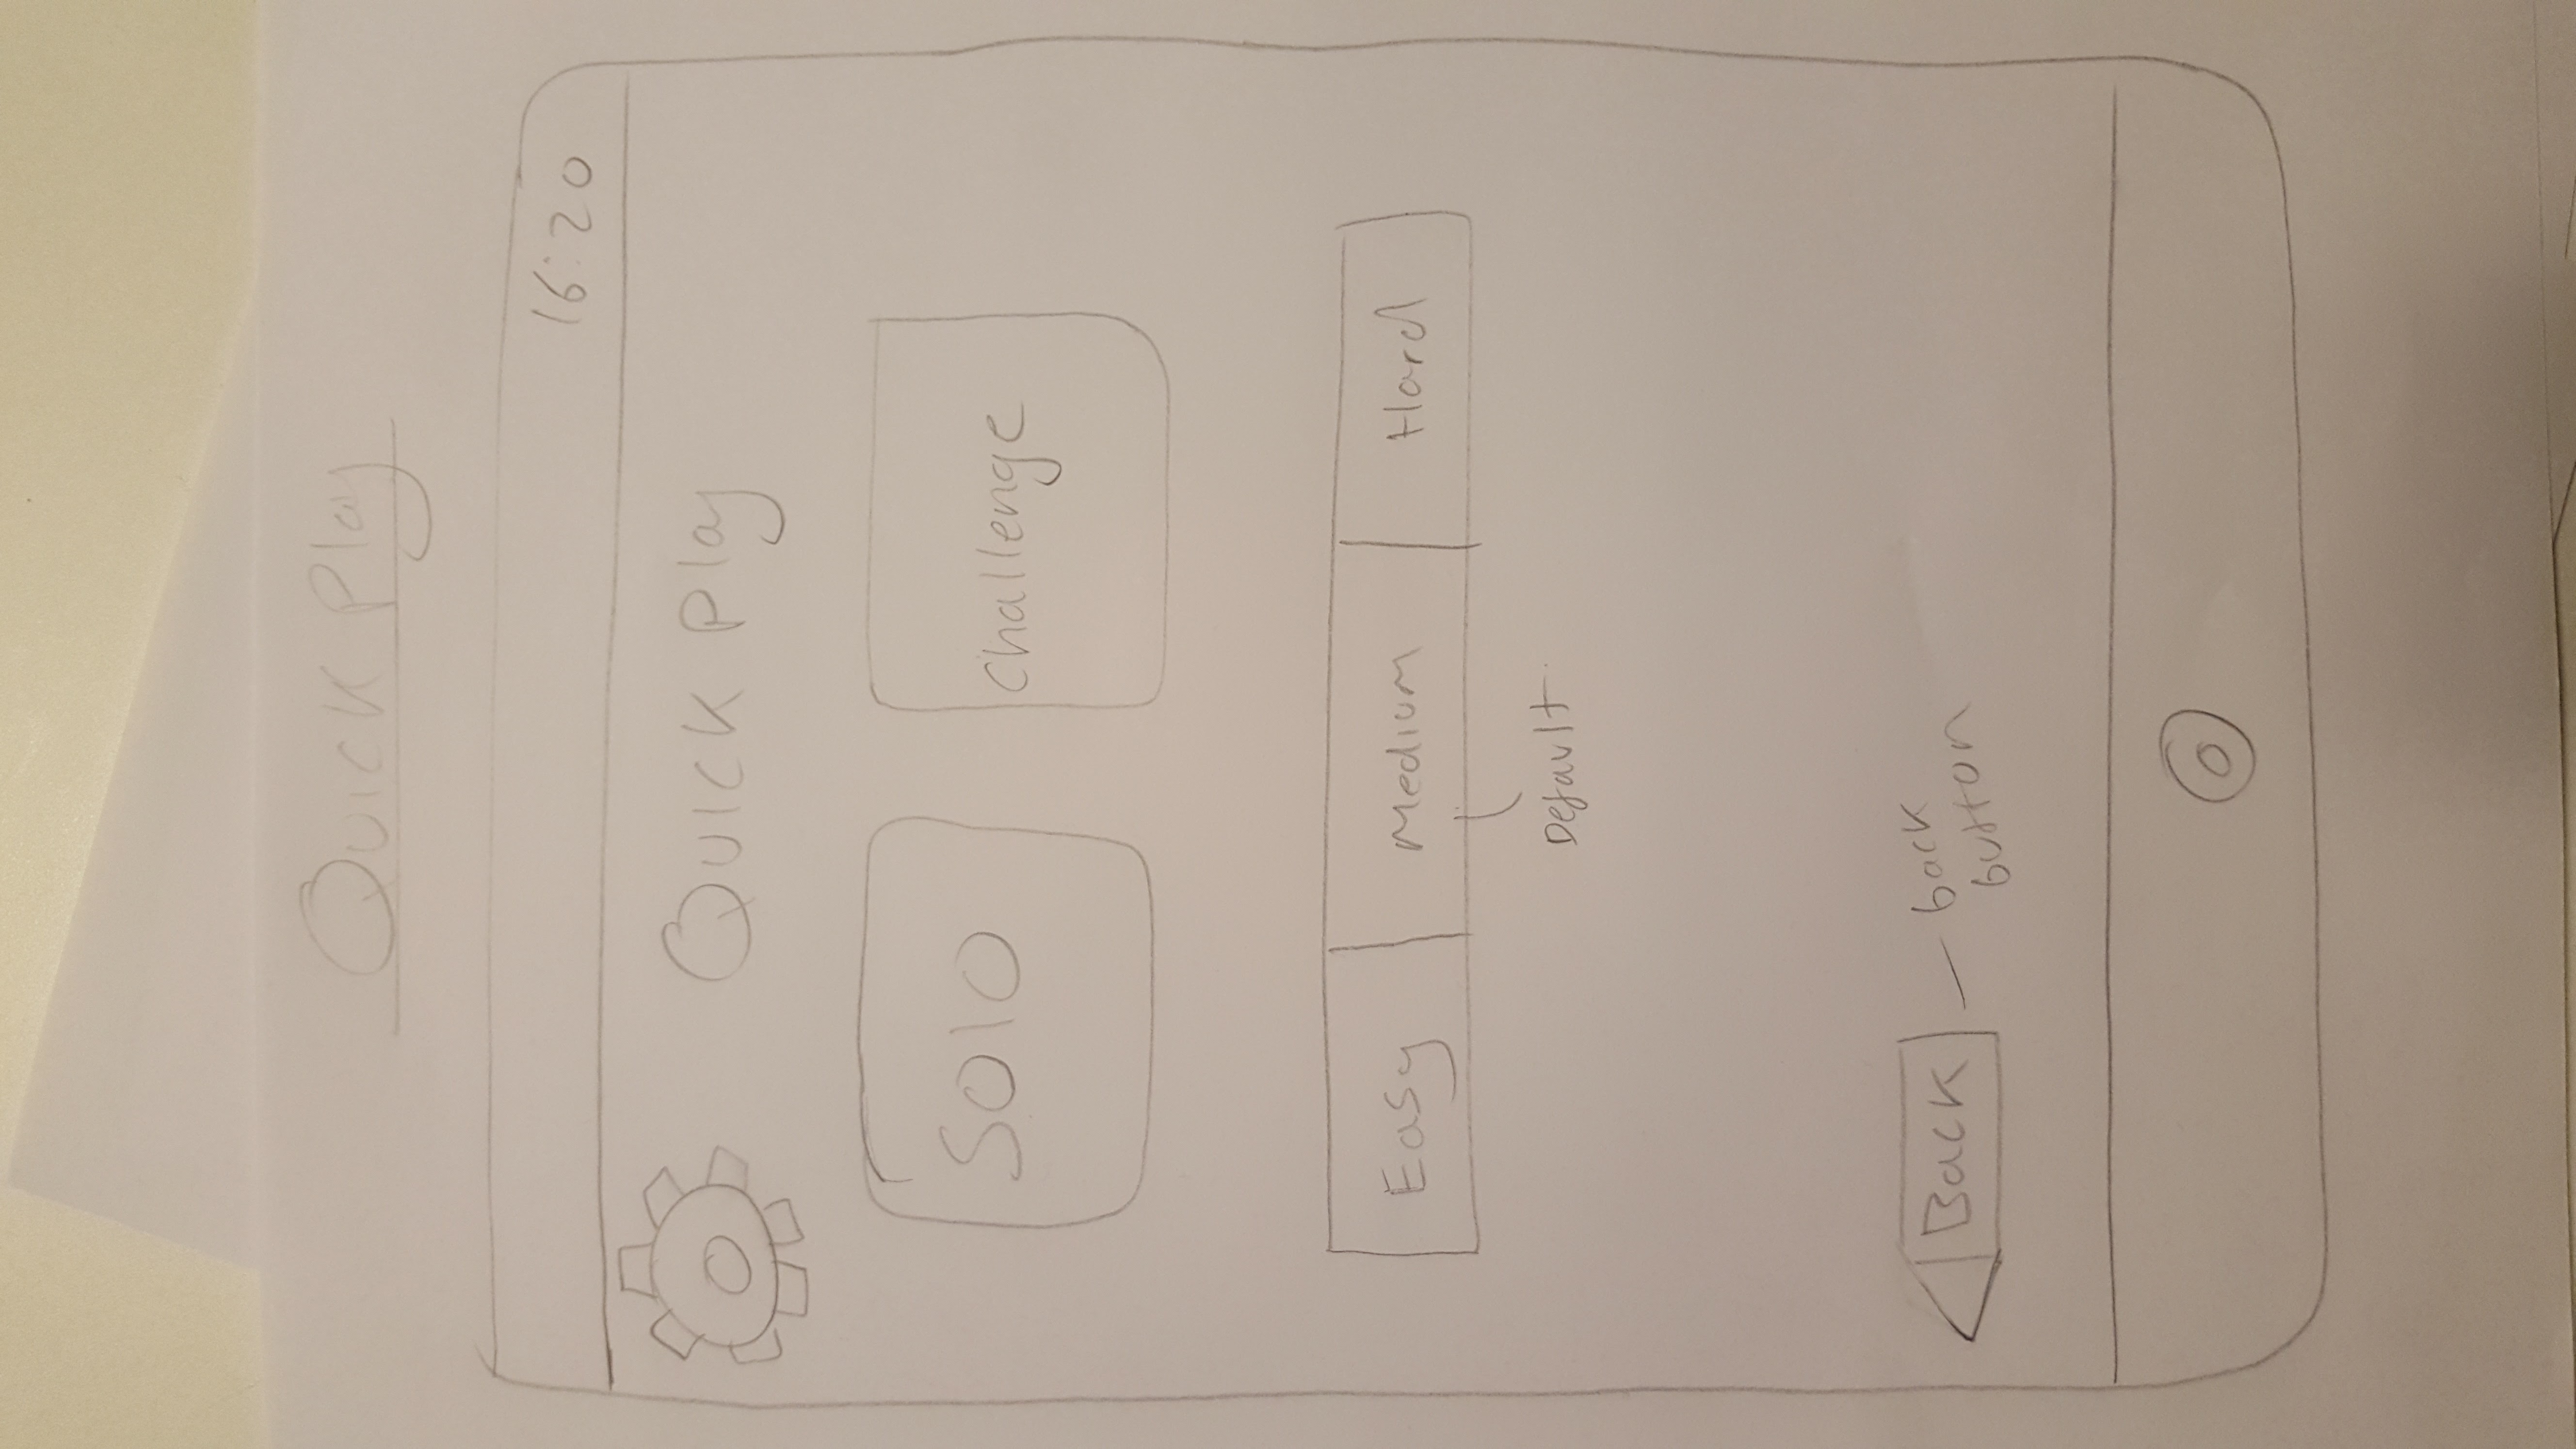 Quick Play
16:20
Quick Play
Solo
Challenge
Easy
Medium
Hard
Default
Back
back
button